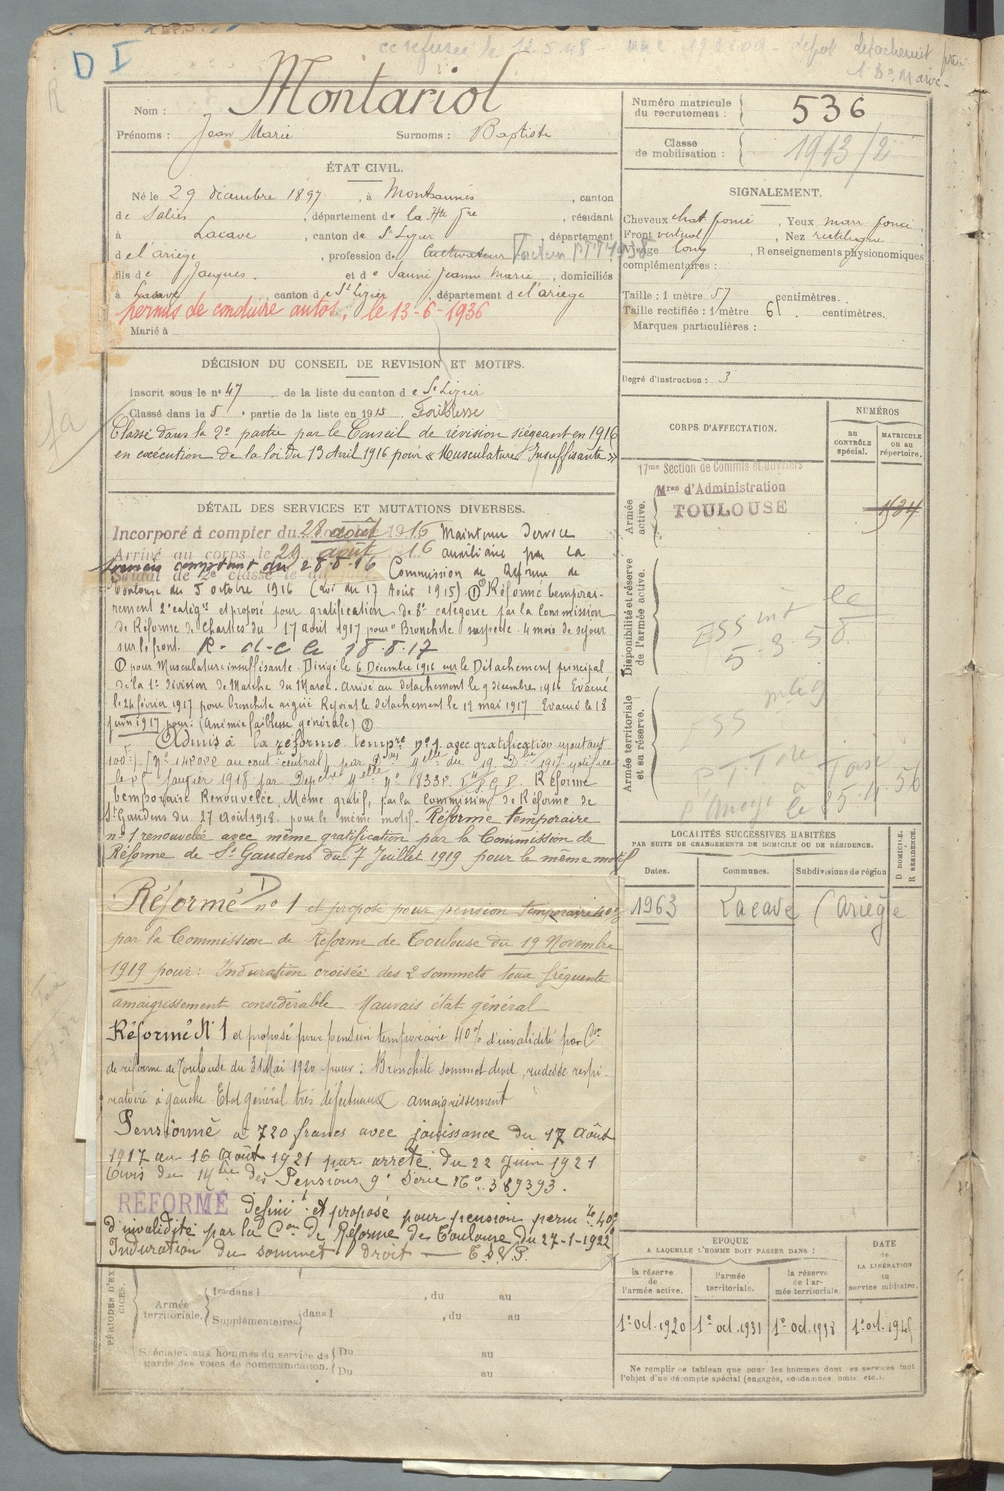 D I
Nom : Montariol
Prénoms : Jean Marie Surnoms : Baptiste
Numéro matricule du recrutement : 536
Classe de mobilisation : 1913/2
ÉTAT CIVIL.
Né le 29 décembre 1897, à Montsaunès, canton
de Salies, département de la Hte Gne, résidant
à Lacave, canton de St Lizier, département
de l'ariege, profession de Cultivateur
fils de Jacques et de Jeanne Marie, domiciliés
à Lacave, canton de St Lizier, département de l'ariege
permis de conduire autos, le 13-6-1936
Marié à
SIGNALEMENT.
Cheveux chat. foncé, Yeux marr. foncé
Front vertical, Nez rectiligne
Visage long, Renseignements physionomiques
complémentaires :
Taille : 1 mètre 57 centimètres.
Taille rectifiée : 1 mètre 61 centimètres.
Marques particulières :
Degré d'instruction : 3
DÉCISION DU CONSEIL DE REVISION ET MOTIFS.
Inscrit sous le no 47 de la liste du canton de St Lizier
Classé dans la 5e partie de la liste en 1915 Faiblesse
Classé dans la 2e partie par le Conseil de révision siégeant en 1916
en exécution de la loi du 13 Avril 1916 pour « Musculature Insuffisante »
DÉTAIL DES SERVICES ET MUTATIONS DIVERSES.
Incorporé à compter du 28 août 1916 Maintenu Service
Arrivé au corps le 29 août 16 auxiliaire par la
services comptant du 28-8-16 Commission de Réforme de
Toulouse du 5 octobre 1916 (Loi du 17 Août 1915) ① Réformé tempo-
rairement 2e catégie et proposé pour gratification de 8e catégorie par la Commission
de Réforme de Chartres du 17 août 1917 pour Bronchite suspecte. 4 mois de séjour
sur le front. R. d. c. le 18-8-17
① pour Musculature insuffisante. Dirigé le 6 Décembre 1916 sur le Détachement principal
de la 1e Division de Marche du Maroc. Arrivé au détachement le 9 décembre 1916 Evacué
le 24 février 1917 pour bronchite aiguë Rejoint le détachement le 12 mai 1917 Evacué le 18
juin 1917 pour (Anémie faiblesse générale) ②
Admis à la réforme tempre no 1 avec gratification
Réforme
temporaire Renouvelée, Même gratif. par la Commission de Réforme de
St Gaudens du 27 Août 1918 pour le même motif. Réforme temporaire
no 1 renouvelée avec même gratification par la Commission de
Réforme de St Gaudens du 7 Juillet 1919 pour le même motif
Réformé no 1 et proposé pour pension temporaire 40%
par la Commission de Réforme de Toulouse du 19 Novembre
1919 pour : Induration croisée des 2 sommets toux fréquente
amaigrissement considérable Mauvais état général
Réformé No 1 et proposé pour pension temporaire 40% d'invalidité par Con
de réforme de Toulouse du 31 Mai 1920 pour : Bronchite sommet droit, rudesse respi-
ratoire à gauche Etat général très défectueux amaigrissement
Pensionné à 720 francs avec jouissance du 17 Août
1917 au 16 Août 1921 par arrêté du 22 Juin 1921
Avis du Mtre des Pensions 9e Série No 389393.
RÉFORMÉ définit et proposé pour pension permte 40%
d'invalidité par la Con de Réforme de Toulouse du 27-1-1922
Induration du sommet droit
CORPS D'AFFECTATION.
NUMÉROS
AU CONTRÔLE SPÉCIAL.
MATRICULE OU AU RÉPERTOIRE.
Armée active.
17me Section de Commis et Ouvriers
Mres d'Administration
TOULOUSE
Disponibilité et réserve de l'armée active.
Armée territoriale et sa réserve.
LOCALITÉS SUCCESSIVES HABITÉES
PAR SUITE DE CHANGEMENTS DE DOMICILE OU DE RÉSIDENCE.
Dates. Communes. Subdivisions de région D DOMICILE. R RÉSIDENCE.
1963 Lacave (Ariège
EPOQUE
A LAQUELLE L'HOMME DOIT PASSER DANS :
DATE de LA LIBÉRATION du service militaire.
la réserve de l'armée active.
l'armée territoriale.
la réserve de l'armée territoriale.
1e oct. 1920 1e oct. 1931 1e oct. 1938
Ne remplir ce tableau que pour les hommes dont les services font
l'objet d'un décompte spécial (engagés, condamnés, omis, etc.).
Armée territoriale. 1re dans l , du au
Supplémentaires dans l , du au
Spéciales aux hommes du service de garde des voies de communication. Du au
Du au